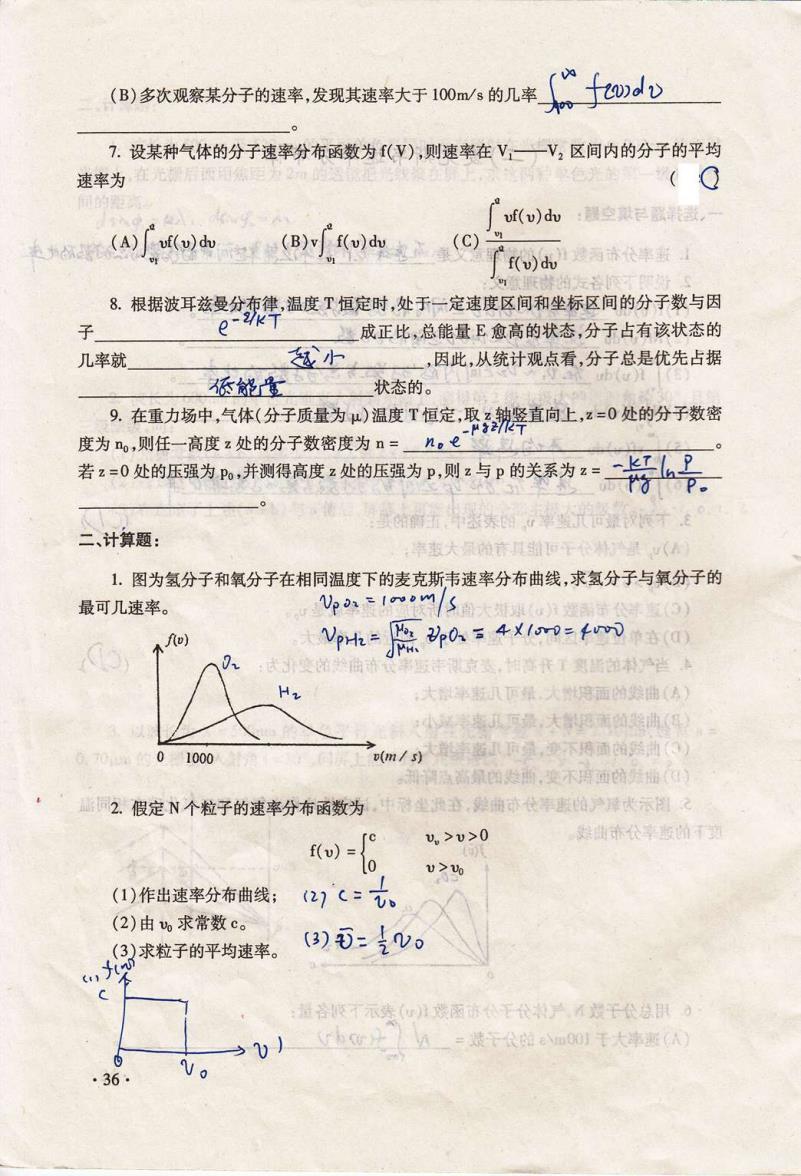 (B)多次观察某分子的速率,发现其速率大于100m/s的几率 ∫₁₀₀^∞ f(v)dv
。
7. 设某种气体的分子速率分布函数为f(V),则速率在V₁——V₂区间内的分子的平均
速率为 ( C )
(A)∫vf(v)dv (B)v∫f(v)dv (C)∫vf(v)dv / ∫f(v)dv
8. 根据波耳兹曼分布律,温度T恒定时,处于一定速度区间和坐标区间的分子数与因
子 e^(-ε/kT) 成正比,总能量E愈高的状态,分子占有该状态的
几率就 越小 ,因此,从统计观点看,分子总是优先占据
低能量 状态的。
9. 在重力场中,气体(分子质量为μ)温度T恒定,取z轴竖直向上,z=0处的分子数密
度为n₀,则任一高度z处的分子数密度为n= n₀e^(-μgz/kT) 。
若z=0处的压强为p₀,并测得高度z处的压强为p,则z与p的关系为z= -kT/μg ln P/P₀
。
二、计算题:
1. 图为氢分子和氧分子在相同温度下的麦克斯韦速率分布曲线,求氢分子与氧分子的
最可几速率。
VpO₂=1000m/s
VpH₂=√(μO₂/μH₂) VpO₂=4×1000=4000
f(v)
O₂
H₂
0 1000 v(m/s)
2. 假定N个粒子的速率分布函数为
f(v)={c v₀>v>0
0 v>v₀
(1)作出速率分布曲线; (2) C=1/v₀
(2)由v₀求常数c。
(3)求粒子的平均速率。 (3) v̄=1/2 v₀
(1) f(v)
C
0 v₀ v
·36·